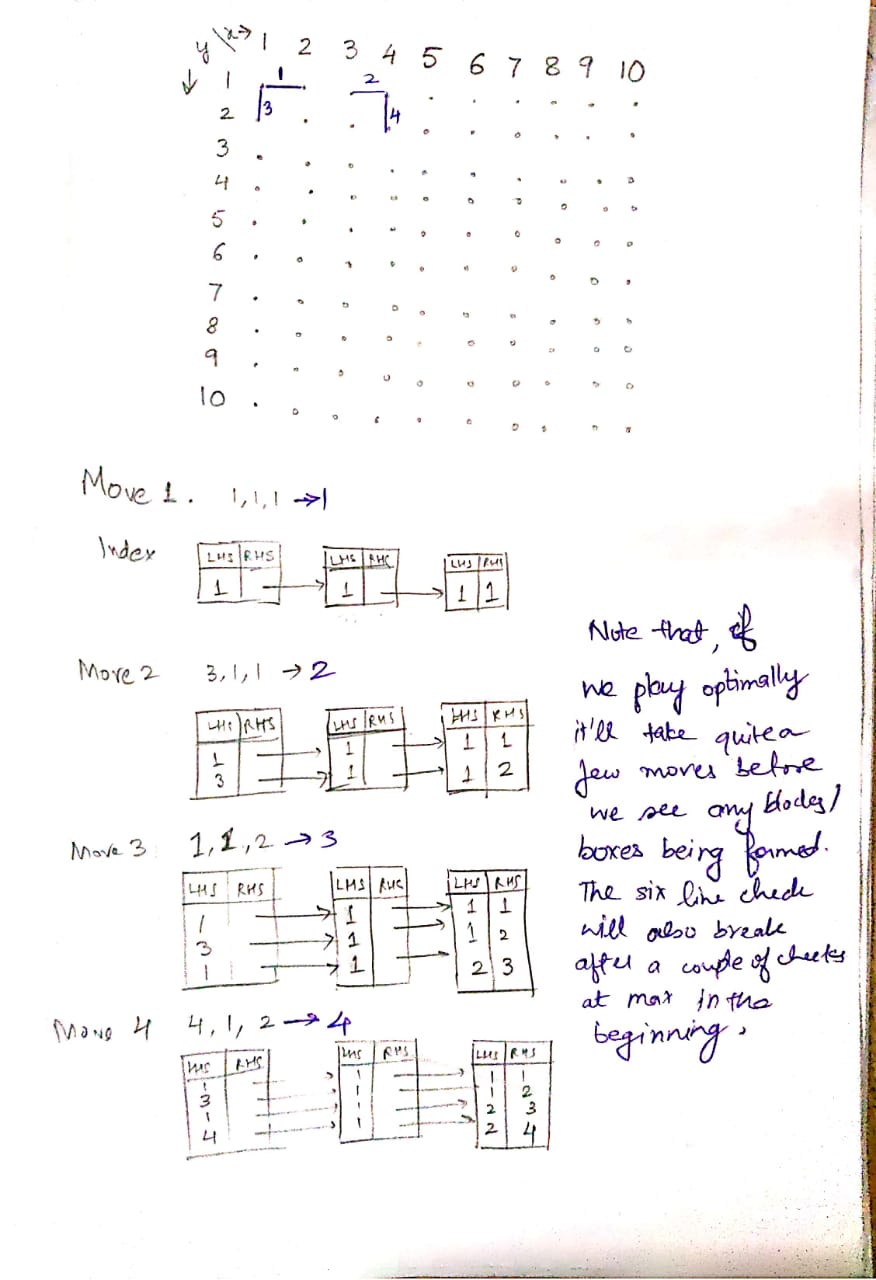 y \ x→ 1 2 3 4 5 6 7 8 9 10
↓ 1 1 2
2 3 4
3
4
5
6
7
8
9
10
Move 1. 1,1,1 →1
Index
LHS RHS LHS RHS LHS RHS
1 1 1 1
Move 2 3,1,1 → 2
LHS RHS LHS RHS LHS RHS
1 1 1 1
3 1 1 2
Move 3 1,1,2 → 3
LHS RHS LHS RHS LHS RHS
1 1 1 1
3 1 1 2
1 1 2 3
Move 4 4,1,2 → 4
LHS RHS LHS RHS LHS RHS
1 1 1 1
3 1 1 2
1 1 2 3
4 1 2 4
Note that, if
we play optimally
it'll take quite a
few moves before
we see any blocks/
boxes being formed.
The six line check
will also break
after a couple of checks
at max in the
beginning.